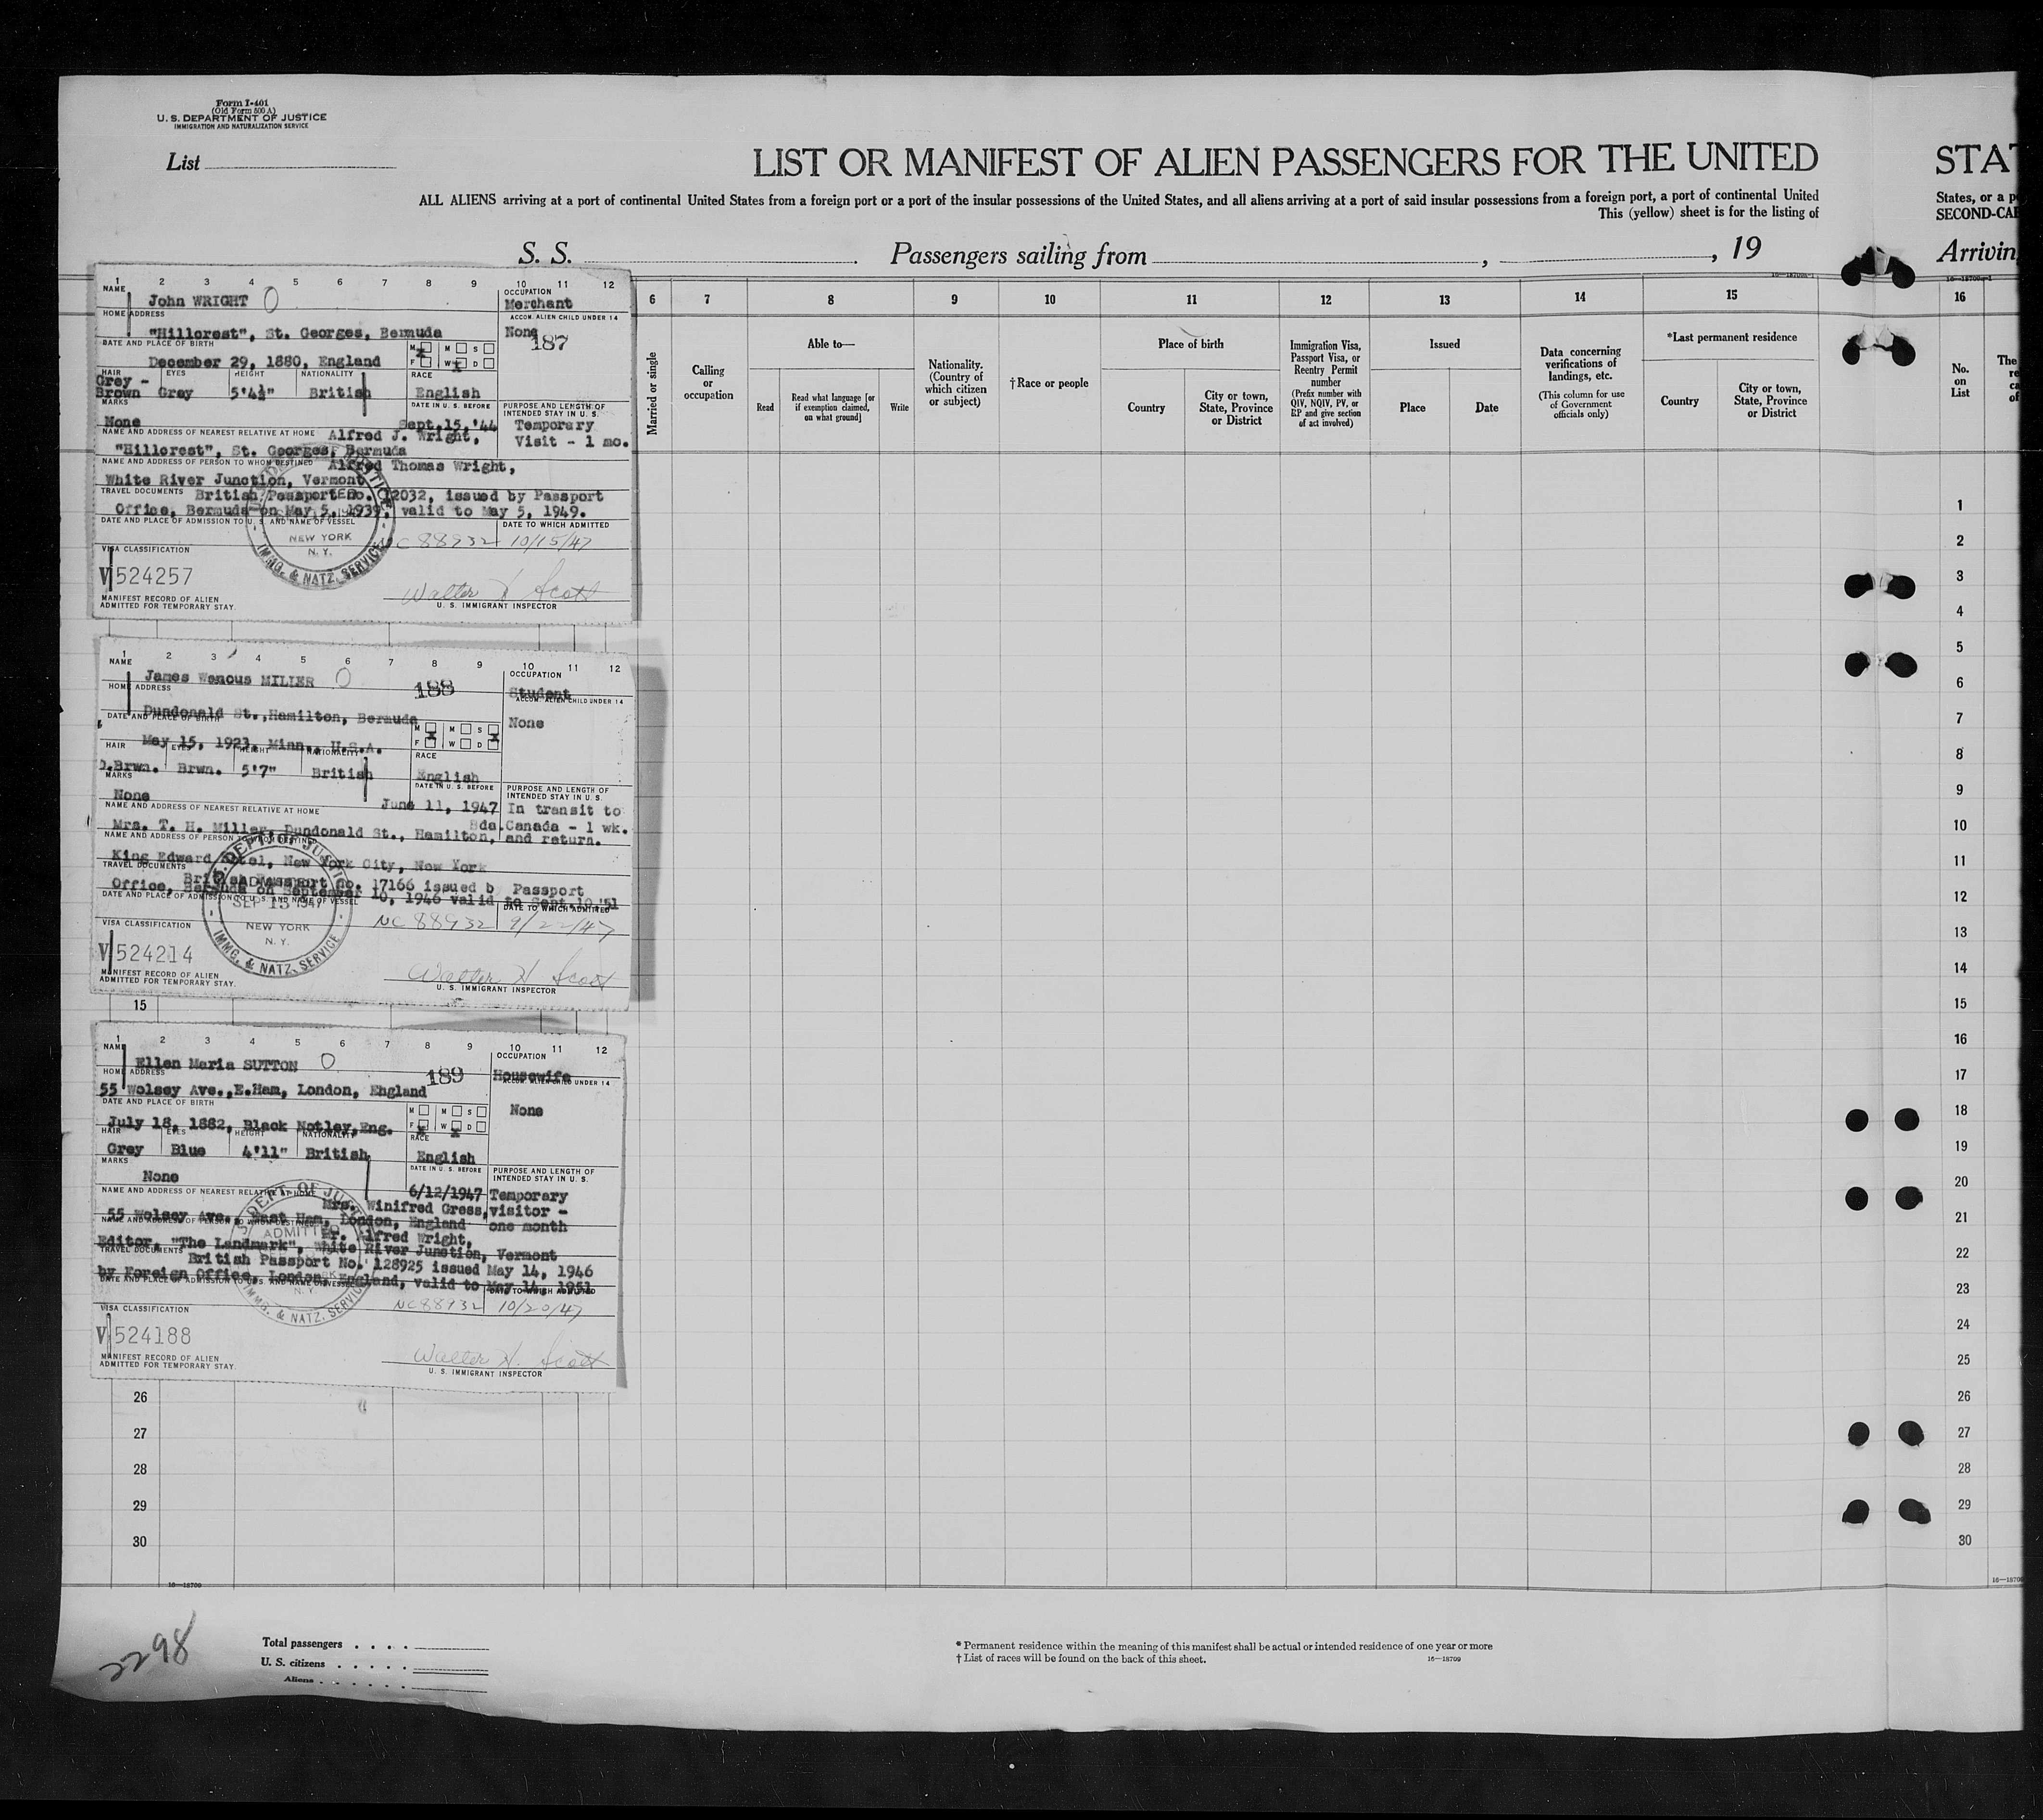 Form I-401
(Old Form 500 A)
U. S. DEPARTMENT OF JUSTICE
IMMIGRATION AND NATURALIZATION SERVICE
List
LIST OR MANIFEST OF ALIEN PASSENGERS FOR THE UNITED
STAT
ALL ALIENS arriving at a port of continental United States from a foreign port or a port of the insular possessions of the United States, and all aliens arriving at a port of said insular possessions from a foreign port, a port of continental United
States, or a p
This (yellow) sheet is for the listing of
SECOND-CAB
S. S. Passengers sailing from , , 19
Arrivin
1 2 3 4 5 6 7 8 9 10 11 12
NAME
John WRIGHT O
OCCUPATION
Merchant
HOME ADDRESS
ACCOM. ALIEN CHILD UNDER 14
"Hillcrest", St. Georges, Bermuda
None
187
DATE AND PLACE OF BIRTH
December 29, 1880, England
M M S
F W D
X X
HAIR EYES HEIGHT NATIONALITY RACE
Grey -
Brown Grey 5'4½" British English
MARKS
DATE IN U. S. BEFORE
PURPOSE AND LENGTH OF
INTENDED STAY IN U. S.
None Sept.15,'44 Temporary
NAME AND ADDRESS OF NEAREST RELATIVE AT HOME
Alfred J. Wright, Visit - 1 mo.
"Hillcrest", St. Georges, Bermuda
NAME AND ADDRESS OF PERSON TO WHOM DESTINED
Alfred Thomas Wright,
White River Junction, Vermont
TRAVEL DOCUMENTS
British Passport No. 12032, issued by Passport
Office, Bermuda on May 5, 1939, valid to May 5, 1949.
DATE AND PLACE OF ADMISSION TO U. S. AND NAME OF VESSEL
DATE TO WHICH ADMITTED
NEW YORK
N. Y.
IMMG. & NATZ. SERVICE
NC 88932 10/15/47
VISA CLASSIFICATION
V 524257
MANIFEST RECORD OF ALIEN
ADMITTED FOR TEMPORARY STAY.
Walter H Scott
U. S. IMMIGRANT INSPECTOR
1 2 3 4 5 6 7 8 9 10 11 12
NAME
James Wenous MILLER O
188
OCCUPATION
Student
HOME ADDRESS
ACCOM. ALIEN CHILD UNDER 14
Dundonald St.,Hamilton, Bermuda
None
DATE AND PLACE OF BIRTH
May 15, 1923, Minn., U.S.A.
M M S
F W D
X X
HAIR EYES HEIGHT NATIONALITY RACE
D.Brwn. Brwn. 5'7" British English
MARKS
DATE IN U. S. BEFORE
PURPOSE AND LENGTH OF
INTENDED STAY IN U. S.
None June 11, 1947 In transit to
NAME AND ADDRESS OF NEAREST RELATIVE AT HOME
Bda. Canada - 1 wk.
Mrs. T. H. Miller, Dundonald St., Hamilton, and return.
NAME AND ADDRESS OF PERSON TO WHOM DESTINED
King Edward Hotel, New York City, New York
TRAVEL DOCUMENTS
British Passport No. 17166 issued b Passport
Office, Bermuda on September 10, 1946 valid to Sept.10,'51
DATE AND PLACE OF ADMISSION TO U. S. AND NAME OF VESSEL
DATE TO WHICH ADMITTED
DEPT. OF JUSTICE
ADMITTED
SEP 15 1947
NEW YORK
N. Y.
IMMG. & NATZ. SERVICE
NC 88932 9/22/47
VISA CLASSIFICATION
V 524214
MANIFEST RECORD OF ALIEN
ADMITTED FOR TEMPORARY STAY.
Walter H Scott
U. S. IMMIGRANT INSPECTOR
15
1 2 3 4 5 6 7 8 9 10 11 12
NAME
Ellen Maria SUTTON O
189
OCCUPATION
Housewife
HOME ADDRESS
ACCOM. ALIEN CHILD UNDER 14
55 Wolsey Ave.,E.Ham, London, England
None
DATE AND PLACE OF BIRTH
July 18, 1882, Black Notley,Eng.
M M S
F W D
X X
HAIR EYES HEIGHT NATIONALITY RACE
Grey Blue 4'11" British English
MARKS
DATE IN U. S. BEFORE
PURPOSE AND LENGTH OF
INTENDED STAY IN U. S.
None
6/12/1947 Temporary
NAME AND ADDRESS OF NEAREST RELATIVE AT HOME
Mrs. Winifred Gress, visitor -
55 Wolsey Ave., East Ham, London, England one month
NAME AND ADDRESS OF PERSON TO WHOM DESTINED
Mr. Alfred Wright,
Editor, "The Landmark", White River Junction, Vermont
TRAVEL DOCUMENTS
British Passport No. 128925 issued May 14, 1946
by Foreign Office, London, England, valid to May 14, 1951
DATE AND PLACE OF ADMISSION TO U. S. AND NAME OF VESSEL
DATE TO WHICH ADMITTED
DEPT. OF JUSTICE
ADMITTED
N. Y.
IMMG. & NATZ. SERVICE
NC 88932 10/20/47
VISA CLASSIFICATION
V 524188
MANIFEST RECORD OF ALIEN
ADMITTED FOR TEMPORARY STAY.
Walter H. Scott
U. S. IMMIGRANT INSPECTOR
26
27
28
29
30
16—18709
6 7 8 9 10 11 12 13 14 15
Married or single
Calling
or
occupation
Able to—
Read
Read what language [or
if exemption claimed,
on what ground]
Write
Nationality.
(Country of
which citizen
or subject)
†Race or people
Place of birth
Country
City or town,
State, Province
or District
Immigration Visa,
Passport Visa, or
Reentry Permit
number
(Prefix number with
QIV, NQIV, PV, or
RP and give section
of act involved)
Issued
Place
Date
Data concerning
verifications of
landings, etc.
(This column for use
of Government
officials only)
*Last permanent residence
Country
City or town,
State, Province
or District
16
No.
on
List
The
re
ca
of
1
2
3
4
5
6
7
8
9
10
11
12
13
14
15
16
17
18
19
20
21
22
23
24
25
26
27
28
29
30
2298
Total passengers . . . .
U. S. citizens . . . . .
Aliens . . . . . .
* Permanent residence within the meaning of this manifest shall be actual or intended residence of one year or more
† List of races will be found on the back of this sheet.
16—18709